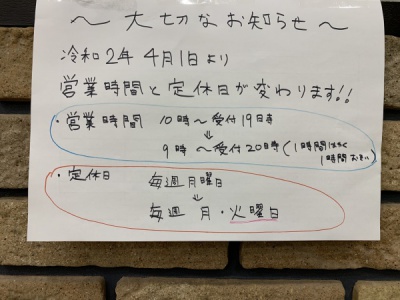 〜大切なお知らせ〜
令和2年4月1日より
営業時間と定休日が変わります!!
・営業時間 10時〜受付19時
↓
9時〜受付20時(1時間はやく
1時間おそい)
・定休日 毎週月曜日
↓
毎週 月・火曜日